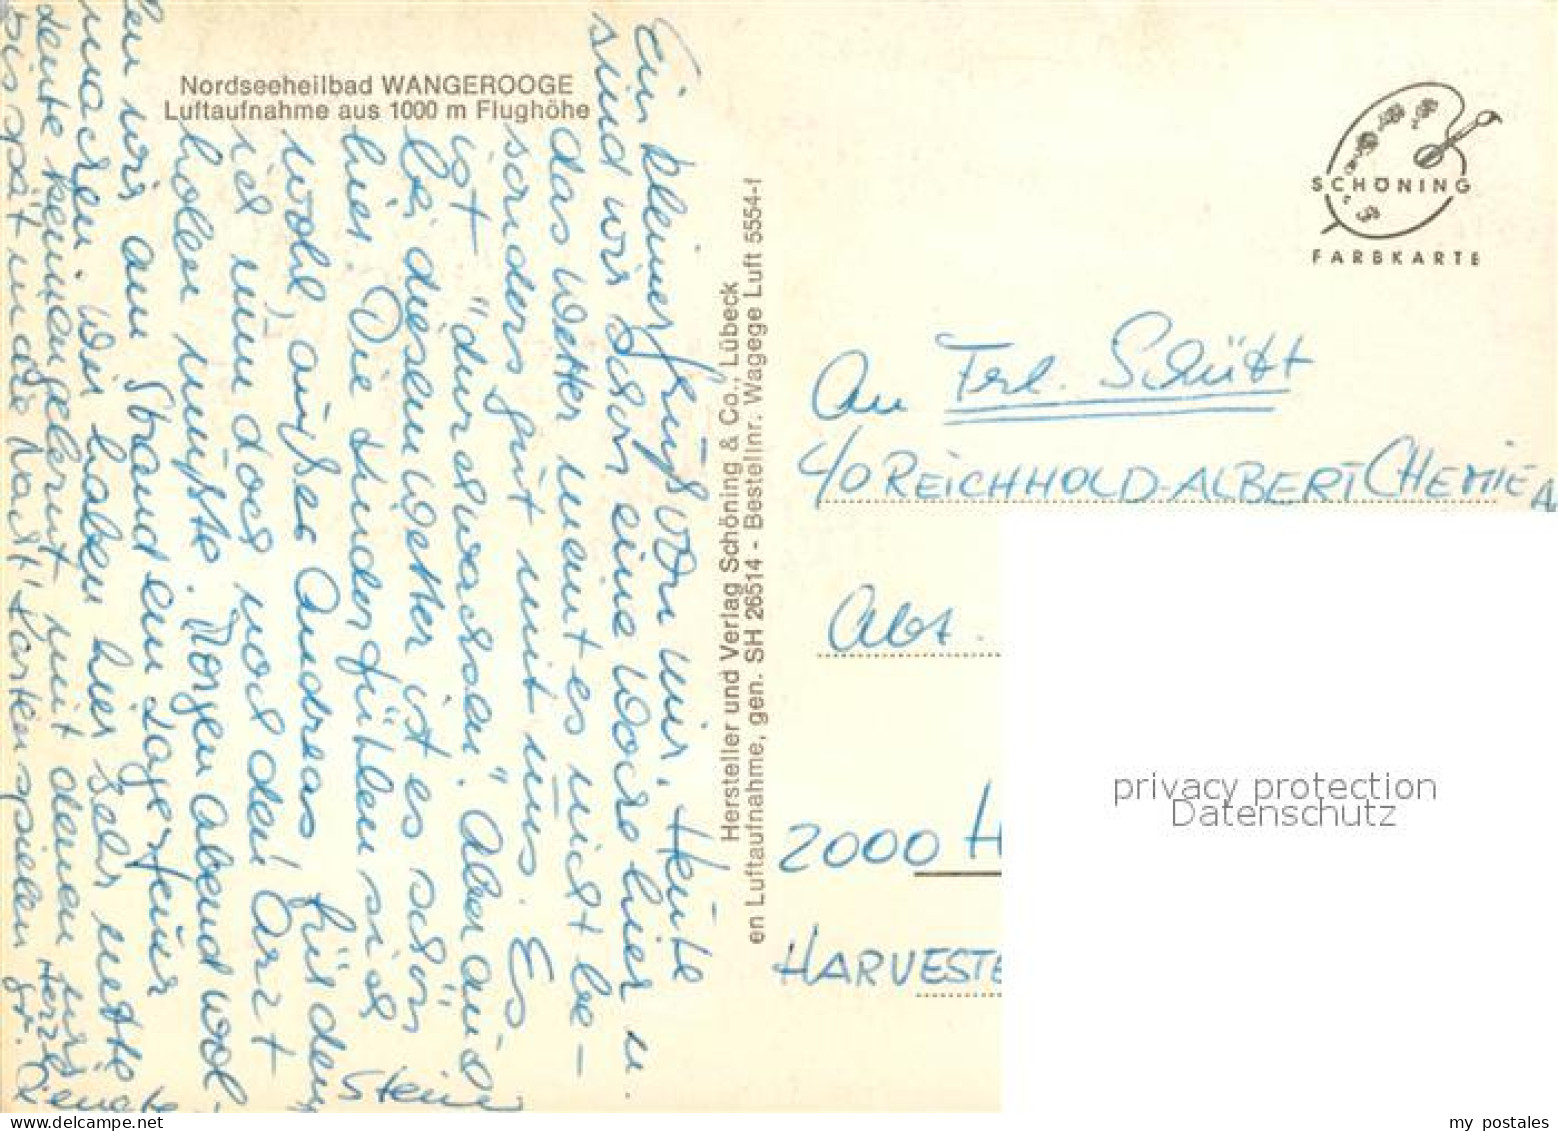 Nordseeheilbad WANGEROOGE
Luftaufnahme aus 1000 m Flughöhe
Ein kleiner Gruß von mir. Heute
sind wir schon eine Woche hier u.
das Wetter meint es nicht be-
sonders gut mit uns. Es
ist "durchwachsen". Aber auch
bei diesem Wetter ist es schön
hier. Die Kinder fühlen sich
wohl, außer Andreas, für den
ich nun doch noch den Arzt
holen mußte. Morgen abend wol-
len wir am Strand ein Lagerfeuer
machen. Wir haben hier sehr nette
Leute kennengelernt mit denen wir
bis spät in die Nacht Karten spielen
Herzl.
Hersteller und Verlag Schöning & Co., Lübeck
en Luftaufnahme, gen. SH 26514 - Bestellnr. Wagege Luft 5554-f
SCHÖNING
FARBKARTE
An Frl. Schütt
c/o REICHHOLD-ALBERT CHEMIE A
Abt.
2000 H
HARVESTE
privacy protection
Datenschutz
my postales